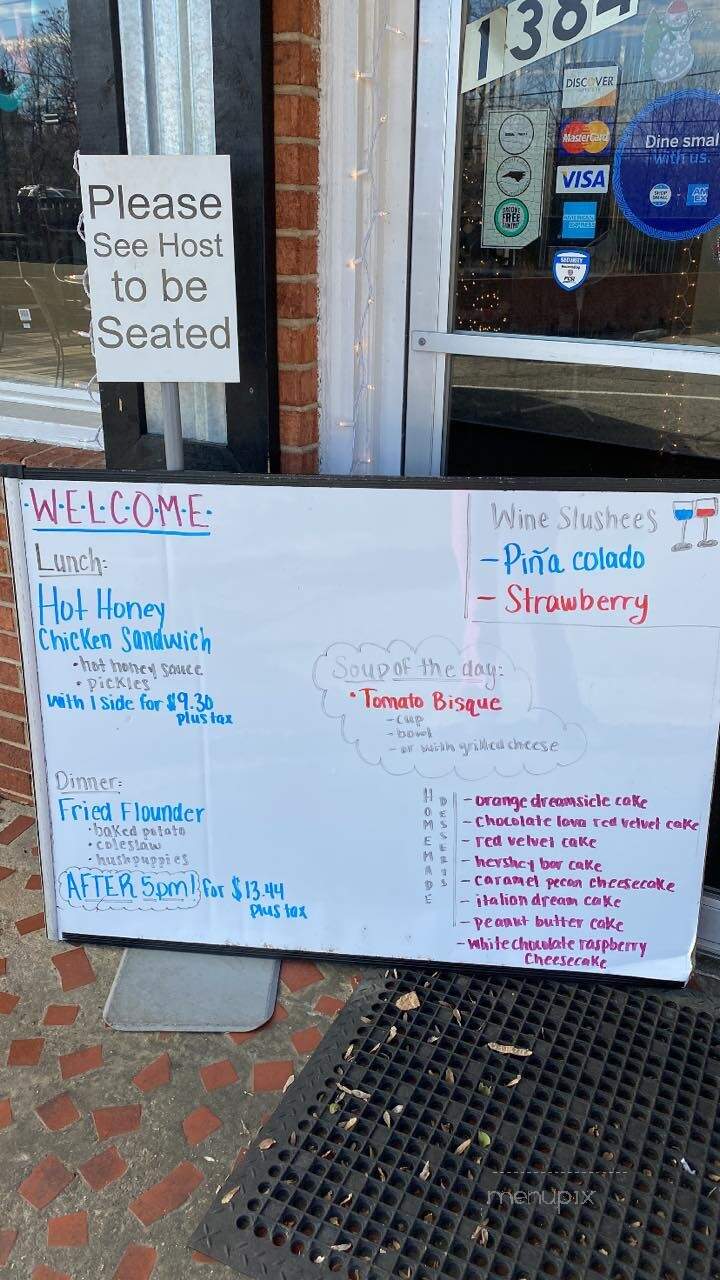 1384
DISCOVER
MasterCard
VISA
AMERICAN EXPRESS
SECURITY
Dine smal
with us.
SHOP SMALL
AM EX
FREE
Please
See Host
to be
Seated
W•E•L•C•O•M•E
Lunch:
Hot Honey
Chicken Sandwich
• hot honey sauce
• pickles
with 1 side for $9.30
plus tax
Dinner:
Fried Flounder
• baked potato
• coleslaw
• hushpuppies
AFTER 5pm! for $13.44
plus tax
Wine Slushees
- Piña colado
- Strawberry
Soup of the day:
• Tomato Bisque
- cup
- bowl
- or with grilled cheese
HOMEMADE
DESSERTS
- orange dreamsicle cake
- chocolate lava red velvet cake
- red velvet cake
- hershey bar cake
- caramel pecan cheesecake
- italian dream cake
- peanut butter cake
- white chocolate raspberry
cheesecake
menupix